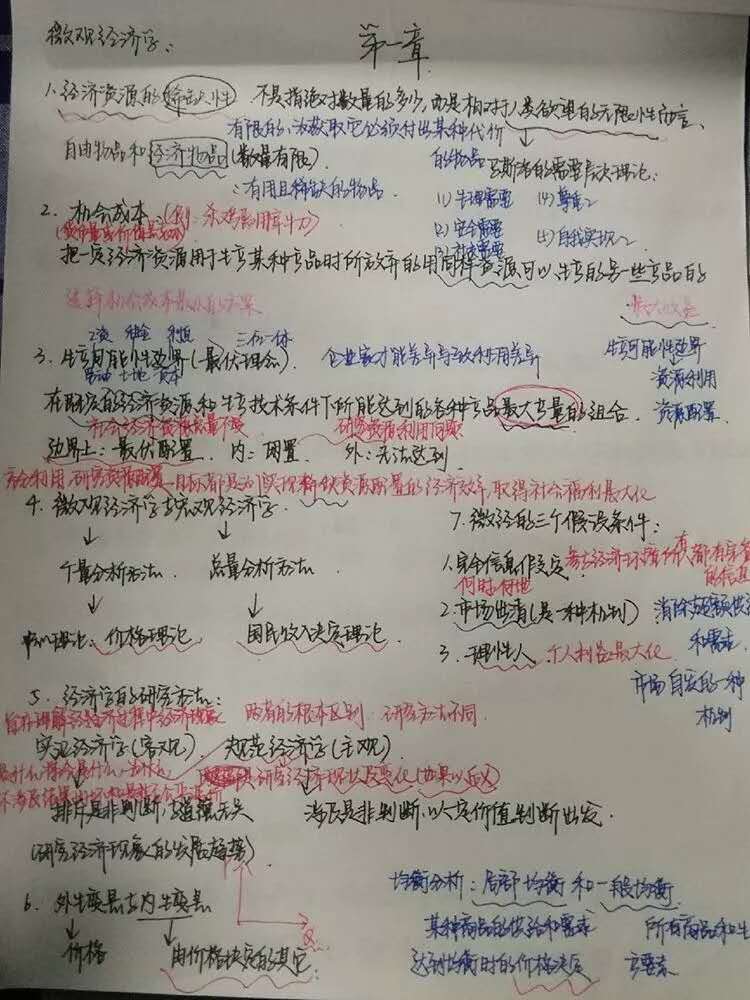 微观经济学：
第一章
1、经济资源的稀缺性 不是指绝对数量的多少，而是相对于人类欲望的无限性而言、
有限的、为获取它必须付出某种代价的物品
自由物品和经济物品(数量有限)
：有用且稀缺的物品
马斯洛的需要层次理论：
(1) 生理需要 (4) 尊重～
(2) 安全需要
2、机会成本：(例：杀鸡用牛刀)
把一定经济资源用于生产某种产品时所放弃的用同样资源可以生产的另一些产品的
最大收益
工资 租金 利息 三位一体
3、生产可能性边界(最优理念) 企业家才能差异导致利用差异
劳动 土地 资本
生产可能性边界
资源利用
资源配置
在既定的经济资源和生产技术条件下所能达到的各种产品最大产量的组合
研究资源利用问题
边界上：最优配置 内：闲置 外：无法达到
目标都是为了实现稀缺资源配置的经济效率，取得社会福利最大化
4、微观经济学与宏观经济学
个量分析方法 总量分析方法
中心理论：价格理论 国民收入决定理论
7、微经的三个假设条件：
1、完全信息假定
何时何地
2、市场出清(是一种机制) 消除超额供给
和需求
3、理性人 个人利益最大化
市场自发的一种
机制
5、经济学的研究方法：
两者的根本区别：研究方法不同
实证经济学(客观) 规范经济学(主观)
排斥是非判断，与道德无关 涉及是非判断，以一定价值判断出发
(研究经济现象的发展趋势)
6、外生变量与内生变量
价格 由价格决定的其它
均衡分析：局部均衡和一般均衡
某种商品的供给和需求 所有商品和生
达到均衡时的价格决定 产要素